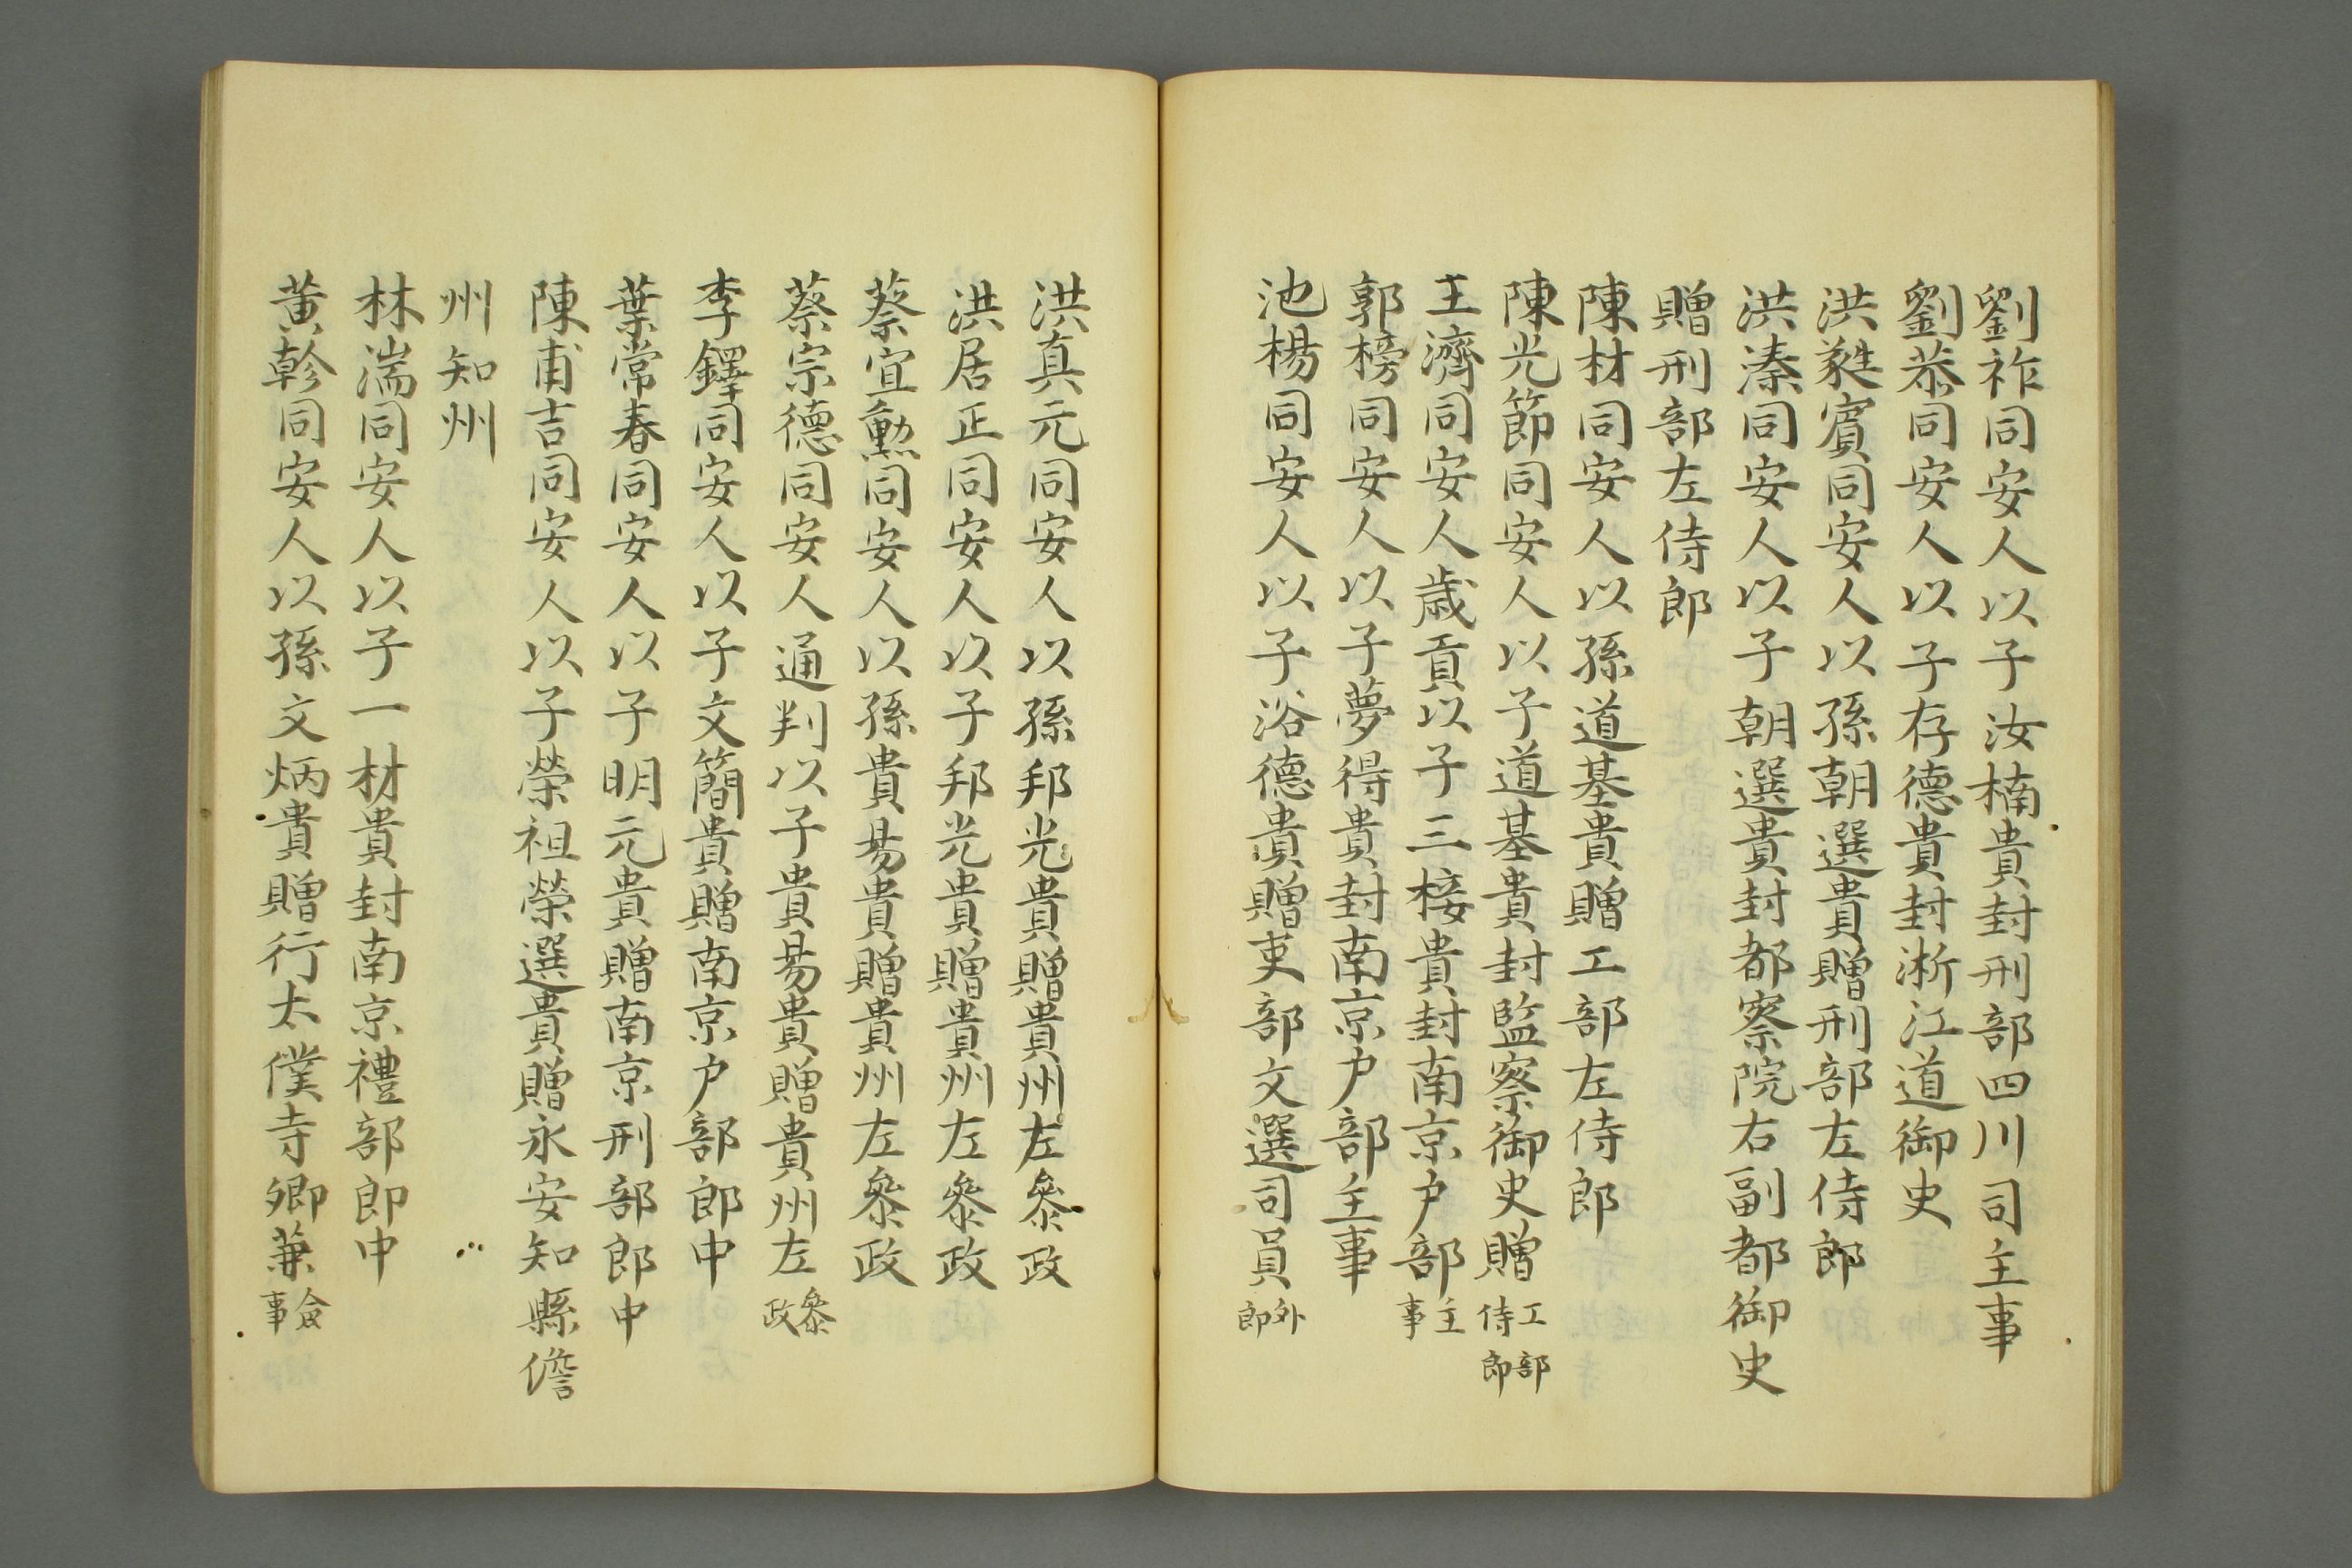 劉祚同安人以子汝楠貴封刑部四川司主事
劉恭同安人以子存德貴封淅江道御史
洪蕤賓同安人以孫朝選貴贈刑部左侍郎
洪溱同安人以子朝選貴封都察院右副都御史
贈刑部左侍郎
陳材同安人以孫道基貴贈工部左侍郎
陳光節同安人以子道基貴封監察御史贈工部侍郎
王濟同安人歲貢以子三接貴封南京户部主事
郭榜同安人以子夢得貴封南京户部主事
池楊同安人以子浴德貴贈吏部文選司員外郎
洪真元同安人以孫邦光貴贈貴州左叅政
洪居正同安人以子邦光貴贈貴州左叅政
蔡宜勳同安人以孫貴昜貴贈貴州左叅政
蔡宗德同安人通判以子貴昜貴贈貴州左叅政
李鐸同安人以子文簡貴贈南京户部郎中
葉常春同安人以子明元貴贈南京刑部郎中
陳甫吉同安人以子榮祖榮選貴贈永安知縣儋
州知州
林湍同安人以子一材貴封南京禮部郎中
黃軫同安人以孫文炳貴贈行太僕寺卿兼僉事